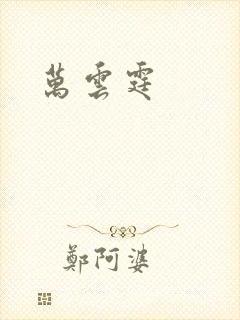 萬雲霆
鄭阿婆